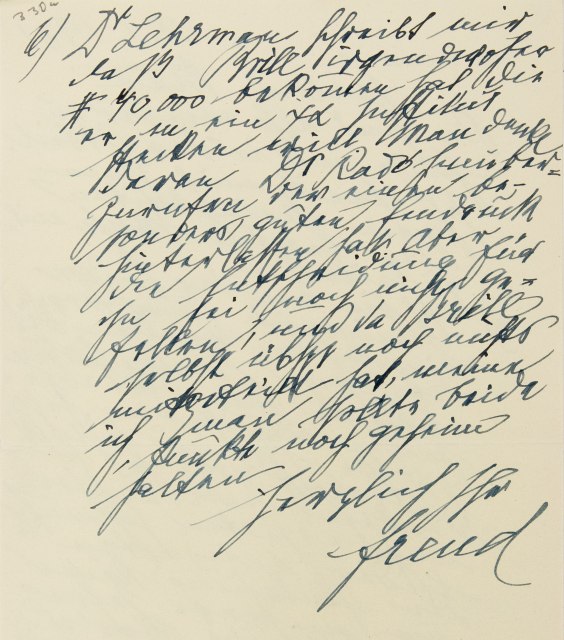 330a
6) Dr Lehrman schreibt mir
daß Brill irgendwoher
# 40,000 bekomen hat die
er in ein ΨA Institut
stecken will. Man denkt
daran Dr Rado hinüber=
zurufen der einen be-
sonders guten Eindruck
hinterlassen hat. Aber
die Entscheidung für
ihn sei noch nicht ge=
fallen, und da Brill
selbst über noch nichts
mitgeteilt hat, meine
ich man sollte beide
Punkte noch geheim
halten
Herzlich Ihr
Freud